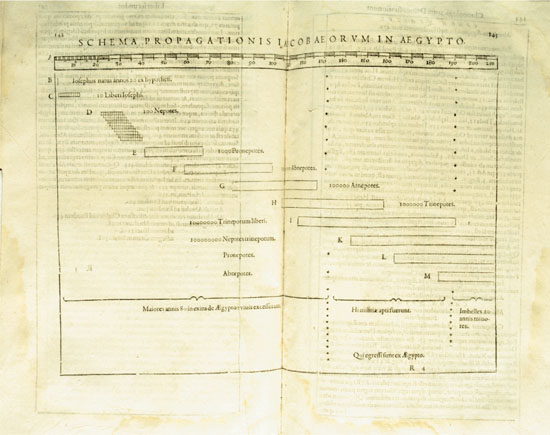 242
243
SCHEMA PROPAGATIONIS IACOBAEORVM IN ÆGYPTO.
10 20 30 40 50 60 70 80 90 100 110 120 130 140 150 160 170 180 190 200 210
B Iosephus natus annos ex hypothesi.
C 10 Liberi Iosephi.
D 100 Nepotes.
E 1000 Pronepotes.
F Abnepotes.
G 100000 Atnepotes.
H 1000000 Trinepotes.
10000000 Trinepotum liberi. I
100000000 Nepotes trinepotum. K
Pronepotes. L
Abnepotes. M
Maiores annis 80 in exitu de Ægypto e vivis excesserunt
Militiæ apti fuerunt.
Imbelles 20
annis mino-
res.
Qui egressi sunt ex Ægypto.
R 4